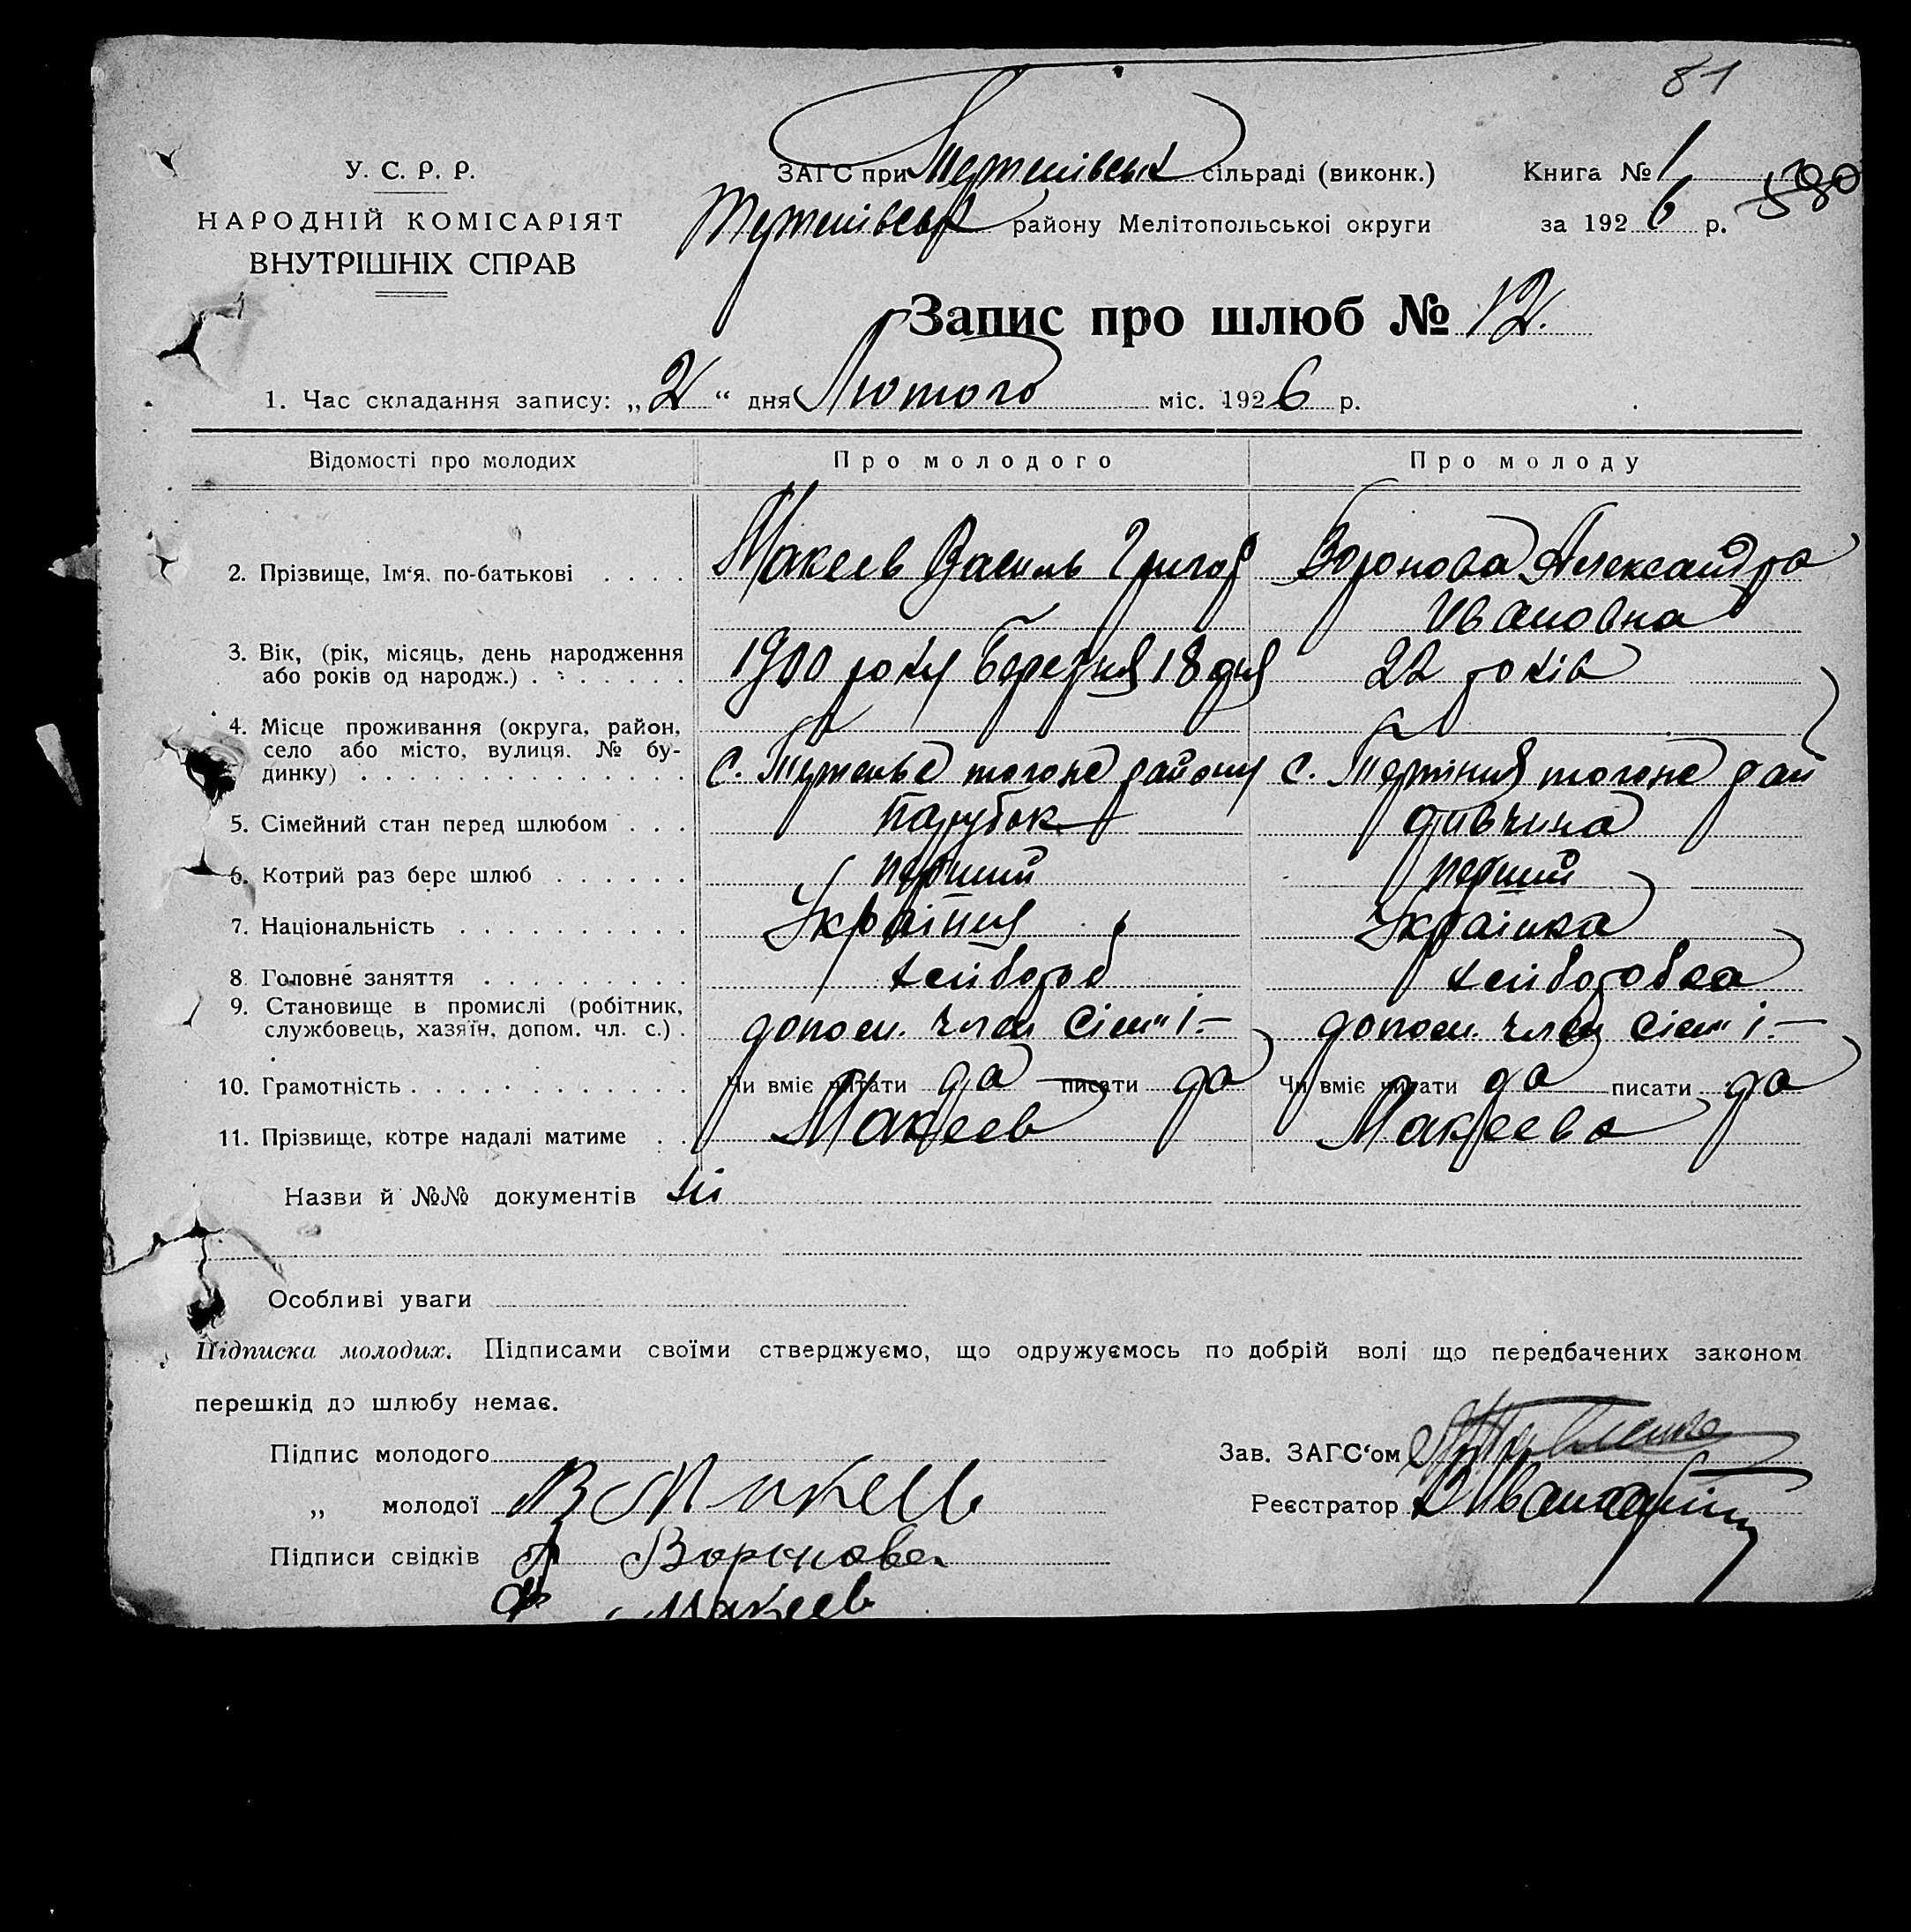 81
У. С. Р. Р.
НАРОДНІЙ КОМІСАРІЯТ
ВНУТРІШНІХ СПРАВ
ЗАГС при сільраді (виконк.)
району Мелітопольської округи
Книга № 1
за 1926 р. 580
Запис про шлюб № 12.
1. Час складання запису: „2“ дня Лютого міс. 1926 р.
Відомості про молодих Про молодого Про молоду
2. Прізвище, Ім‘я, по-батькові . . . . Макеев Василь Григор Воронова Александра
Ивановна
3. Вік, (рік, місяць, день народження
або років од народж.) . . . . . . . 1900 року Березня 18 дня 22 років
4. Місце проживання (округа, район,
село або місто, вулиця. № бу-
динку) . . . . . . . . . . . . . с. тогоже району с. тогоже рай
5. Сімейний стан перед шлюбом . . . парубок дивчина
6. Котрий раз бере шлюб . . . . . . перший перший
7. Національність . . . . . . . . . . Українка
8. Головне заняття . . . . . . . . . хлібороб хліборобка
9. Становище в промислі (робітник,
службовець, хазяїн, допом. чл. с.) . допом. член сім"ї.— допом. член сім"ї.—
10. Грамотність . . . . . . . . . . . . Чи вміє читати да писати да Чи вміє читати да писати да
11. Прізвище, котре надалі матиме . . Макеев Макеева
Назви й №№ документів ні
Особливі уваги
Підписка молодих. Підписами своїми стверджуємо, що одружуємось по добрій волі що передбачених законом
перешкід до шлюбу немає.
Підпис молодого
Зав. ЗАГС‘ом
„ молодої В Макеев
Реєстратор
Підписи свідків А Воронова
Макеев